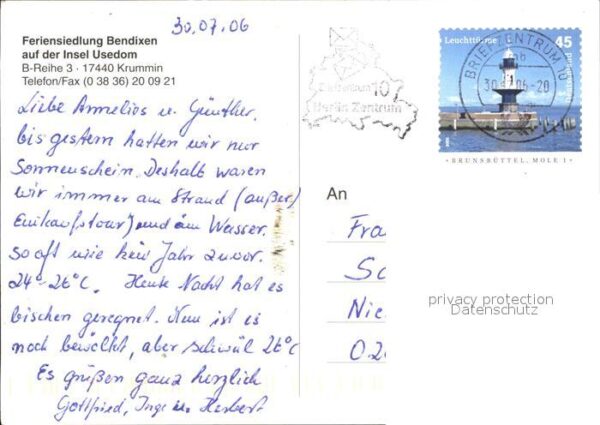 30.07.06
Feriensiedlung Bendixen
auf der Insel Usedom
B-Reihe 3 · 17440 Krummin
Telefon/Fax (0 38 36) 20 09 21
Liebe Annelios u. Günther,
bis gestern hatten wir nur
Sonnenschein. Deshalb waren
wir immer am Strand (außer
Einkaufstour) und im Wasser.
so oft wie kein Jahr zuvor.
24°-26°C. Heute Nacht hat es
bischen geregnet. Nun ist es
noch bewölkt, aber schwül 26°C
Es grüßen ganz herzlich
Gottfried, Inge u. Herbert
Briefzentrum 10
Berlin Zentrum
Leuchttürme 45
BRIEFZENTRUM 10
30.7.06-20
BRUNSBÜTTEL, MOLE 1
An
Fra
Sc
Nie
02
privacy protection
Datenschutz